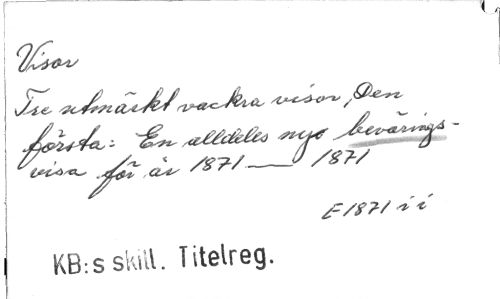 Visor
Tre utmärkt vackra visor, Den
första: En alldeles nye bevärings-
visa för år 1871 — 1871
E 1871 i i
KB:s skill. Titelreg.